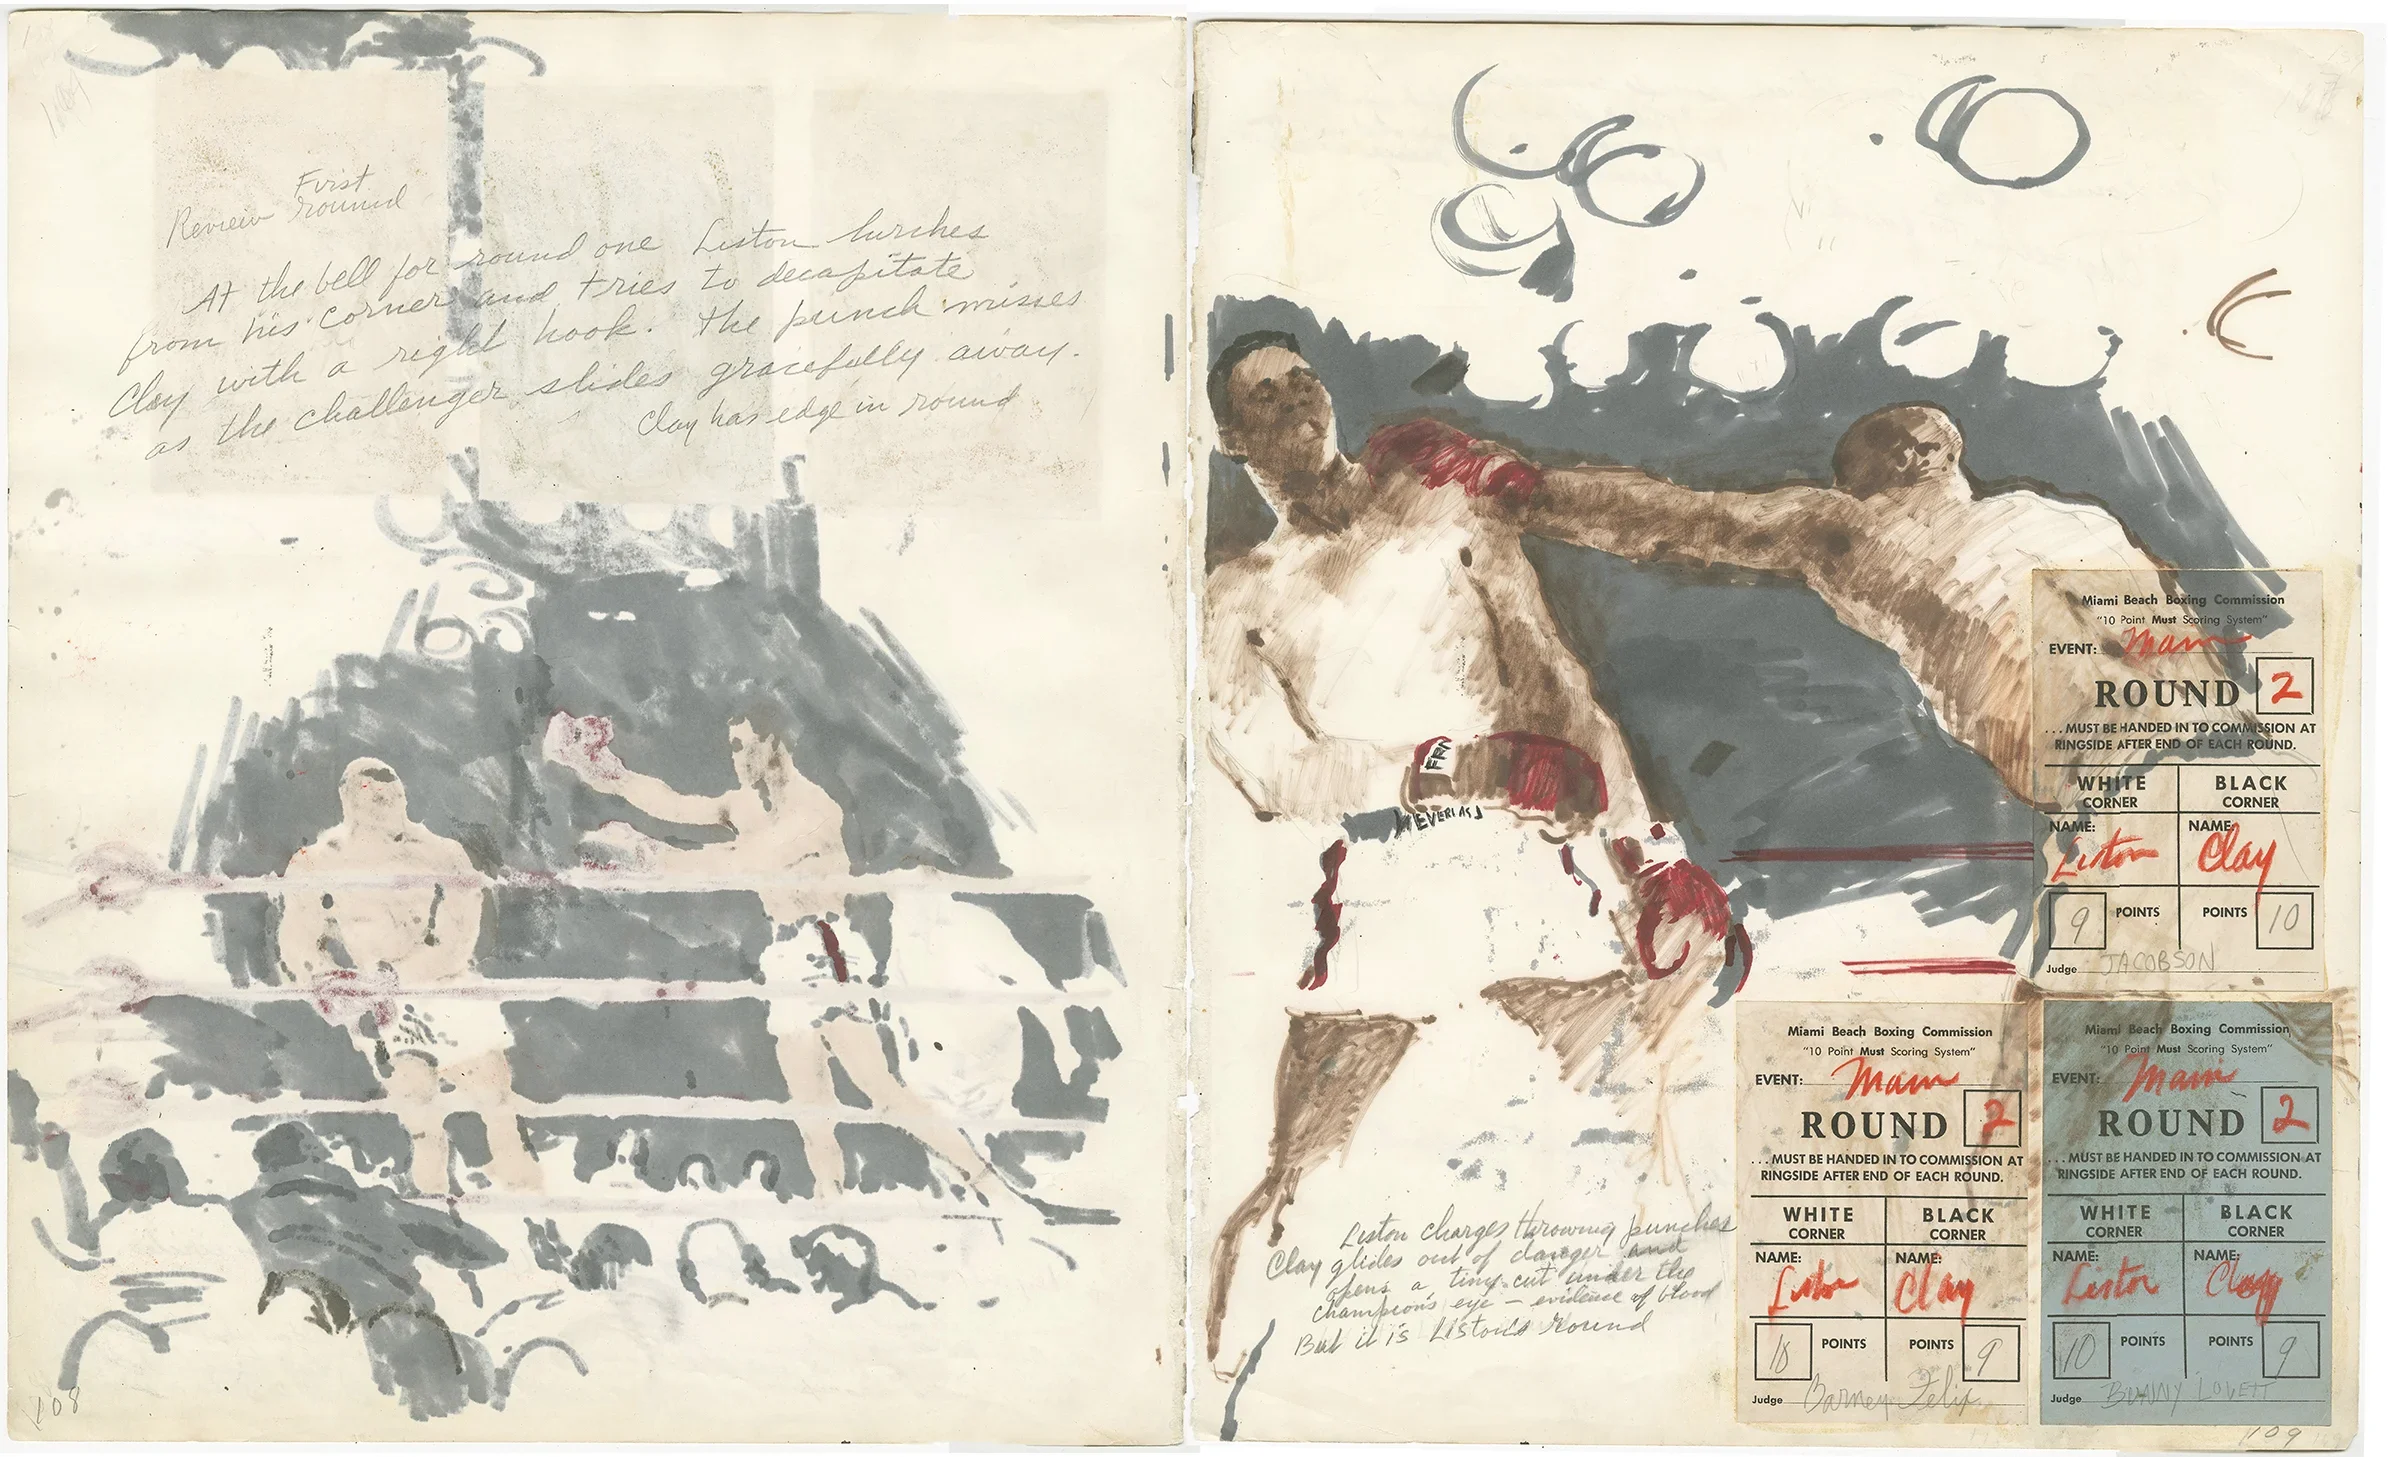 First
Review round
At the bell for round one Liston lurches
from his corner and tries to decapitate
Clay with a right hook. The punch misses
as the challenger slides gracefully away.
Clay has edge in round
108
EVERLAS
Liston charges throwing punches
Clay glides out of danger and
opens a tiny cut under the
champion's eye – evidence of blood
But it is Liston's round
Miami Beach Boxing Commission
"10 Point Must Scoring System"
EVENT: Main
ROUND 2
...MUST BE HANDED IN TO COMMISSION AT
RINGSIDE AFTER END OF EACH ROUND.
WHITE BLACK
CORNER CORNER
NAME: NAME:
Liston Clay
9 POINTS POINTS 10
Judge JACOBSON
Miami Beach Boxing Commission
"10 Point Must Scoring System"
EVENT: Main
ROUND 2
...MUST BE HANDED IN TO COMMISSION AT
RINGSIDE AFTER END OF EACH ROUND.
WHITE BLACK
CORNER CORNER
NAME: NAME:
Liston Clay
10 POINTS POINTS 9
Judge Barney Felix
Miami Beach Boxing Commission
"10 Point Must Scoring System"
EVENT: Main
ROUND 2
...MUST BE HANDED IN TO COMMISSION AT
RINGSIDE AFTER END OF EACH ROUND.
WHITE BLACK
CORNER CORNER
NAME: NAME:
Liston Clay
10 POINTS POINTS 9
Judge BUNNY LOVETT
109